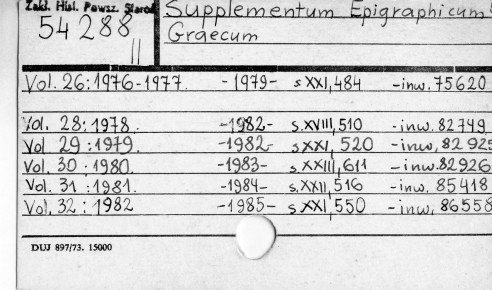 Zakł. Hist. Powsz. Staroż
54288
II
Supplementum Epigraphicum
Graecum
Vol. 26:1976-1977. -1979- s XXI,484 -inw. 75620
Vol. 28:1978. -1982- s. XVIII,510 -inw. 82749
Vol 29:1979. -1982- s XXI, 520 -inw, 82925
Vol. 30:1980. -1983- s. XXIII,611 -inw.82926
Vol. 31:1981. -1984- s. XXII,516 -inw. 85418
Vol. 32:1982 -1985- s XXI,550 -inw, 86558
DUJ 897/73. 15000